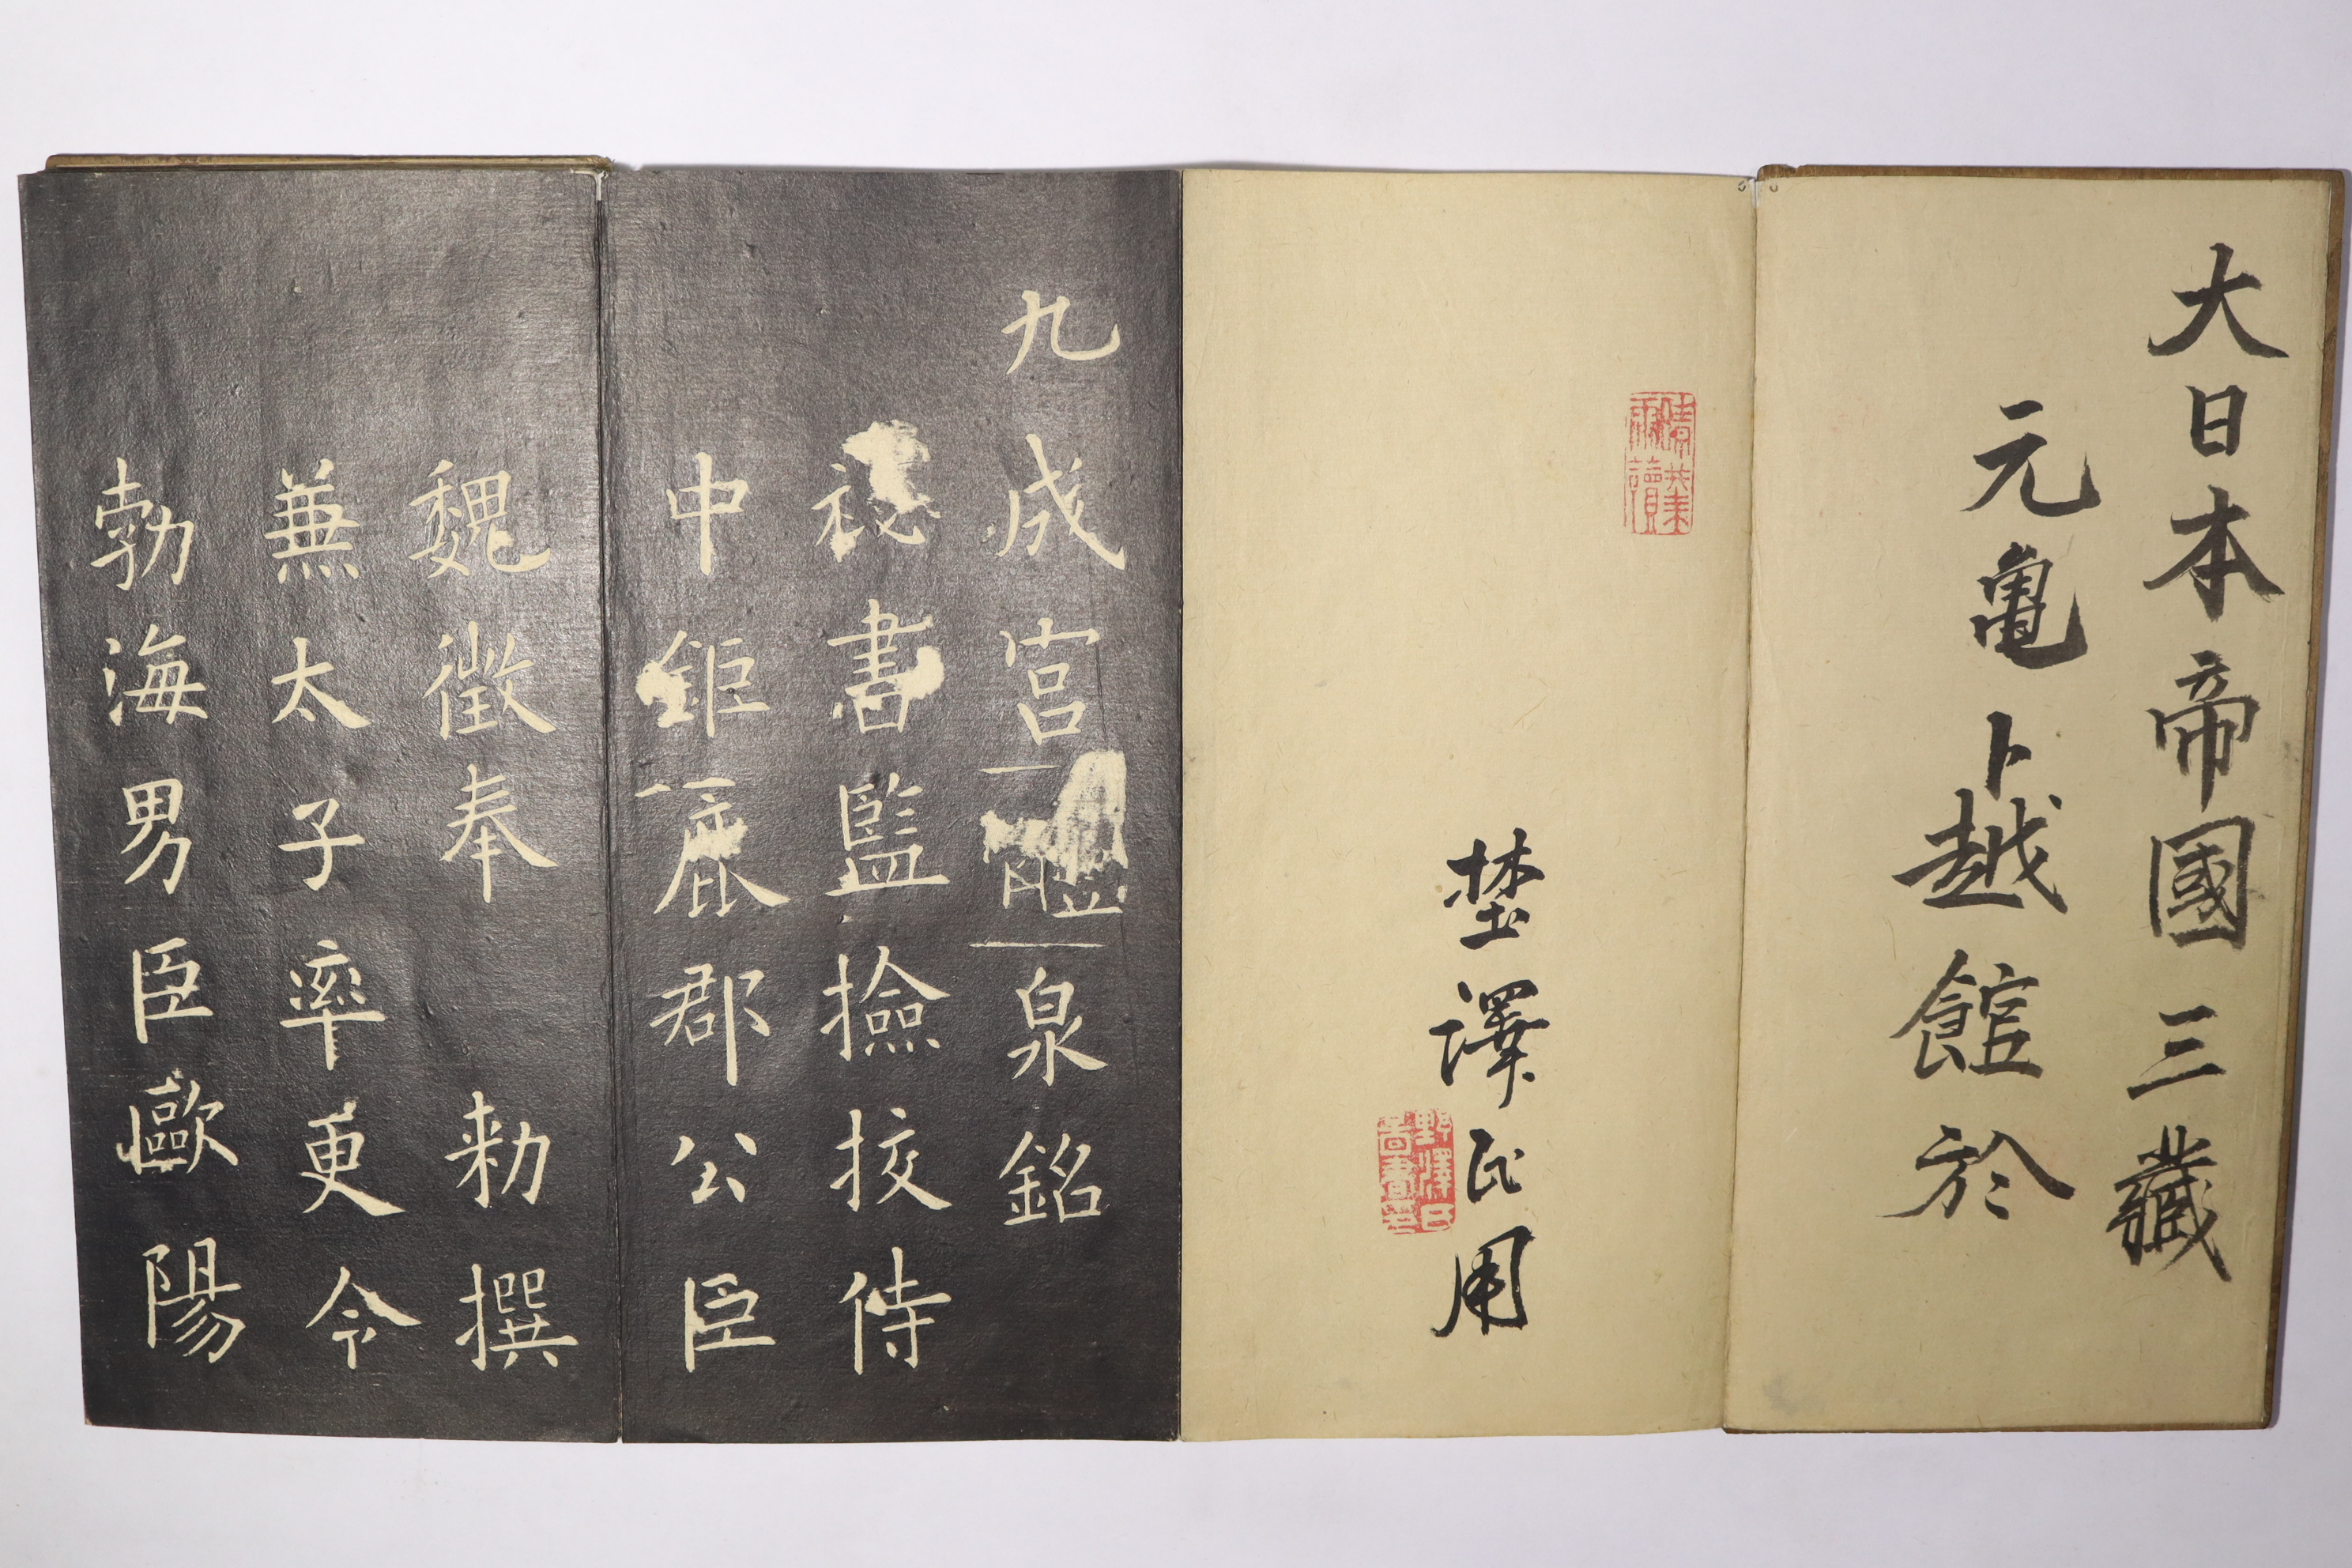 大日本帝國三藏
元亀卜越館於
埜澤氏用
野澤氏
九成宮醴泉銘
秘書監撿挍侍
中鉅鹿郡公臣
魏徵奉 勅撰
兼太子率更令
勃海男臣歐陽